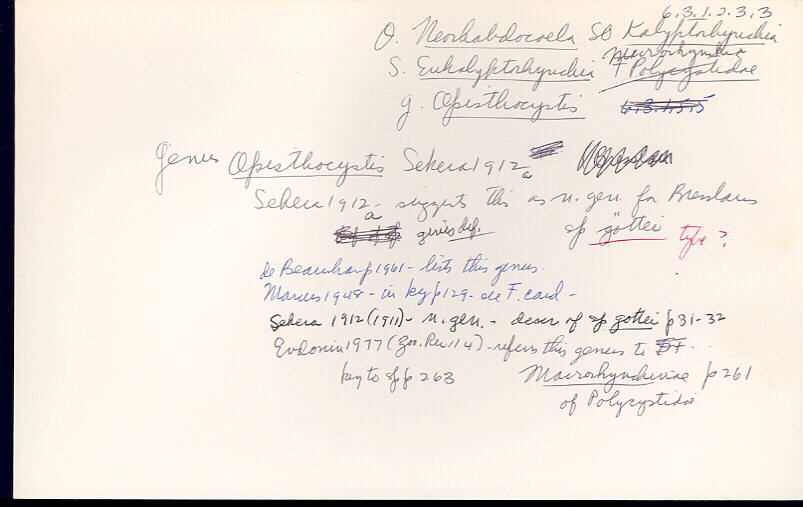 6.3.1.2.3.3
O. Neorhabdocoela SO Kalyptorhynchia
S. Eukalyptorhynchia F Polycystidae
g. Opisthocystis
Genus Opisthocystis Sekera 1912a
Sekera 1912a - suggests this as n. gen. for Bresslaus
genus dif. sp göttei type?
de Beauchamp 1961 - lists this genus.
Marcus 1948 - in key p129 - see F. card -
Sekera 1912 (1911) - n. gen. - descr of sp gottei p 31-32
Evdonin 1977 (Zoo. Rec 114) - refers this genus to
key to sp p 263 Macrorhynchinae p 261
of Polycystidae